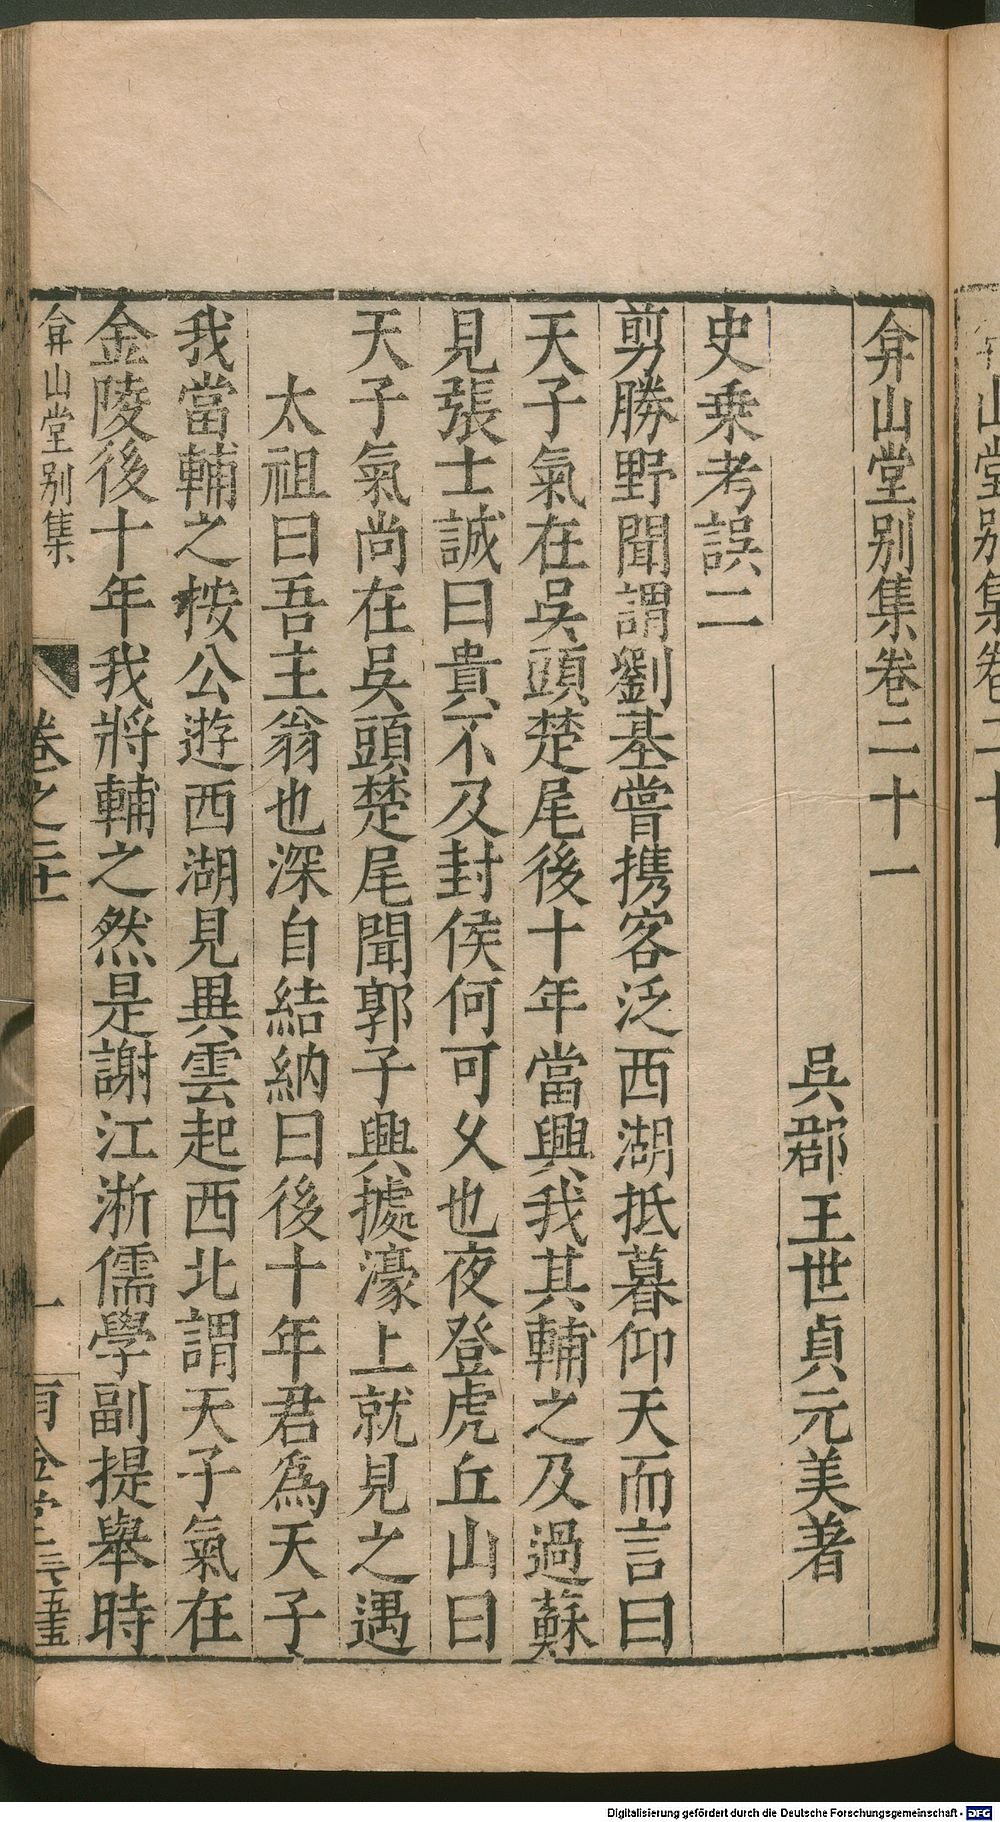 弇山堂别集卷二十一
吳郡王世貞元美著
史乗考誤二
剪勝野聞謂劉基嘗携客泛西湖抵暮仰天而言曰
天子氣在吳頭楚尾後十年當興我其輔之及過蘇
見張士誠曰貴不及封侯何可乆也夜登虎丘山曰
天子氣尚在吳頭楚尾聞郭子興據濠上就見之遇
太祖曰吾主翁也深自結納曰後十年君爲天子
我當輔之按公遊西湖見異雲起西北謂天子氣在
金陵後十年我將輔之然是謝江淅儒學副提舉時
弇山堂别集
卷之二十一
一
山堂别集卷二十
Digitalisierung gefördert durch die Deutsche Forschungsgemeinschaft - DFG